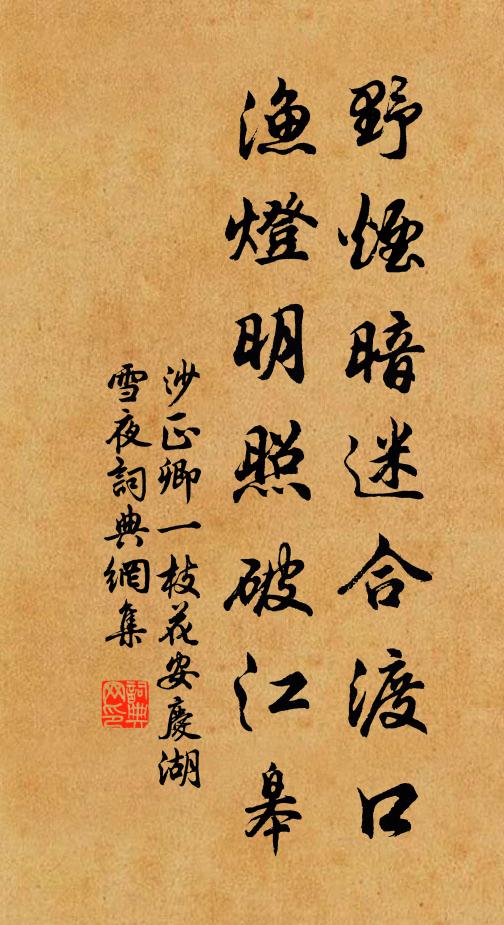 野煙暗迷合渡口
漁燈明照破江皋
沙正卿一枝花安慶湖
雪夜詞典網集
詞典
网印